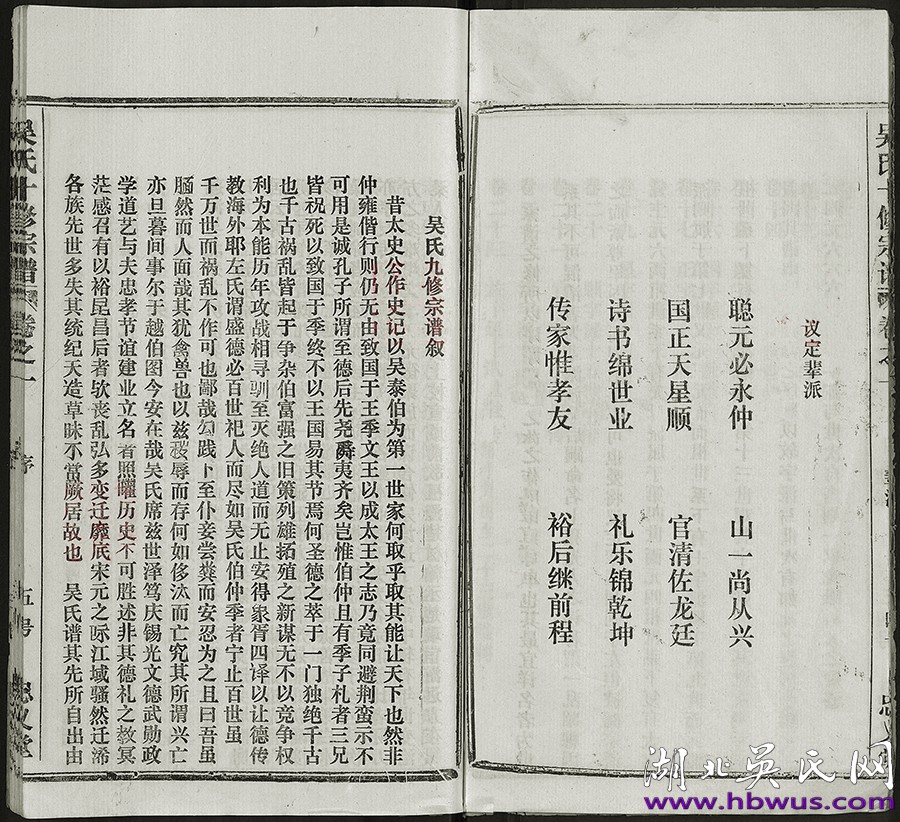 议定辈派
聪元必永仲 山一尚从兴
国正天星顺 官清佐龙廷
诗书绵世业 礼乐锦乾坤
传家惟孝友 裕后继前程
吴氏九修宗谱叙
昔太史公作史记以吴泰伯为第一世家何取乎取其能让天下也然非
仲雍偕行则仍无由致国于王季文王以成太王之志乃竟同避荆蛮示不
可用是诚孔子所谓至德后先尧舜夷齐矣岂惟伯仲且有季子札者三兄
皆祝死以致国于季终不以王国易其节焉何圣德之萃于一门独绝千古
也千古祸乱皆起于争杂伯富强之旧策列雄拓殖之新谋无不以竞争权
利为本能历年攻战相寻驯至灭绝人道而无止安得家胥四译以让德传
教海外耶左氏谓盛德必百世祀人而尽如吴氏伯仲季者宁止百世虽
千万世而祸乱不作可也鄙哉勾践卜至仆妾尝粪而安忍为之且曰吾虽
腼然而人面哉其犹禽兽也以兹秽辱而存何如侈汰而亡究其所谓兴亡
亦旦暮间事尔于越伯图今安在哉吴氏席兹世泽笃庆锡光文德武勋政
学道艺与夫忠孝节谊建业立名者照耀历史不可胜述非其德礼之教冥
茫感召有以裕昆昌后者欤丧乱弘多变迁靡底宋元之际江域骚然迁浠
各族先世多失其统纪天造草昧不当厥居故也 吴氏谱其先所自出由
吴氏十修宗谱
卷之一
序
五号
湖北吴氏网
www.hbwus.com